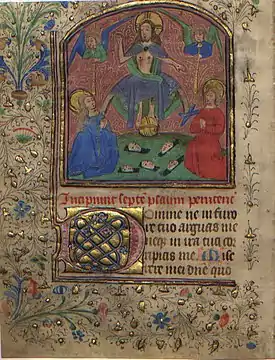 Incipiunt septe psalmi penitenc
Domine ne in furo
re tuo arguas me
neqз in ira tua cor
ripias me. Mise
rere mei dne quo